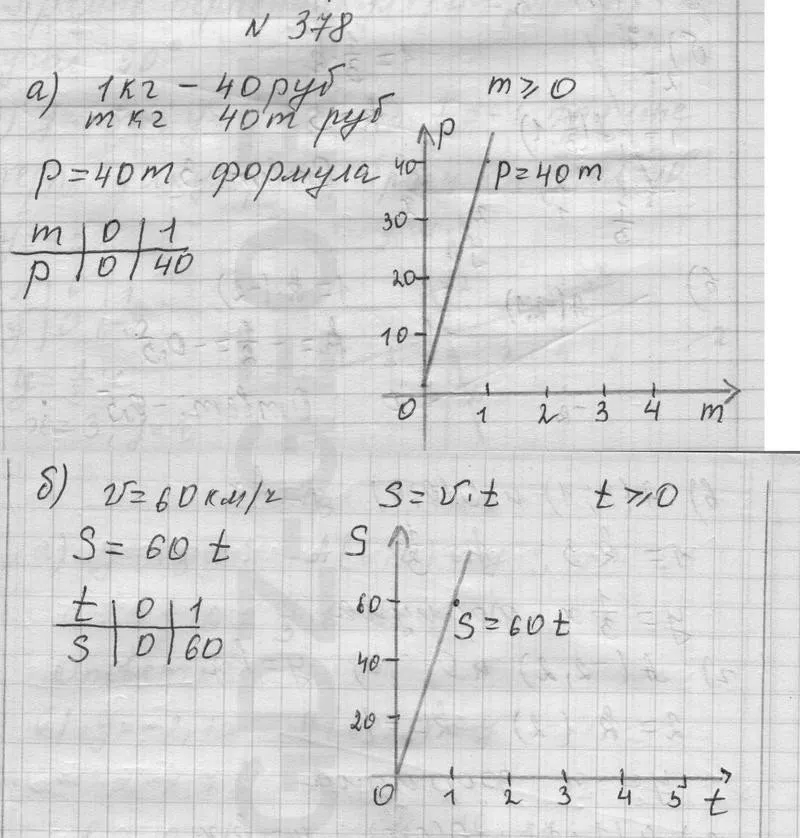 N 378
а) 1кг – 40 руб m ≥ 0
m кг 40m руб
p = 40m формула
m | 0 | 1
p | 0 | 40
p
40
30
20
10
p = 40m
0 1 2 3 4 m
б) v = 60 км/г S = v·t t ≥ 0
S = 60 t
t | 0 | 1
S | 0 | 60
S
60
40
20
S = 60 t
0 1 2 3 4 5 t